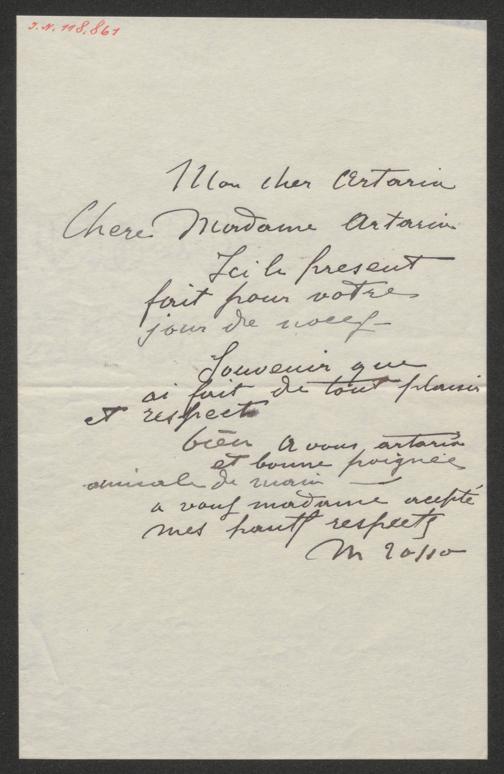 J.N. 118.861
Mon cher Artaria
Chere Madame Artaria
Ici le present
fait pour votre
jour de noces
Souvenir que
ai fait de tout plaisir
et respect
bien a vous artaria
et bonne poignée
amicale de main
a vous madame acepté
mes hauts respects
M Rosso